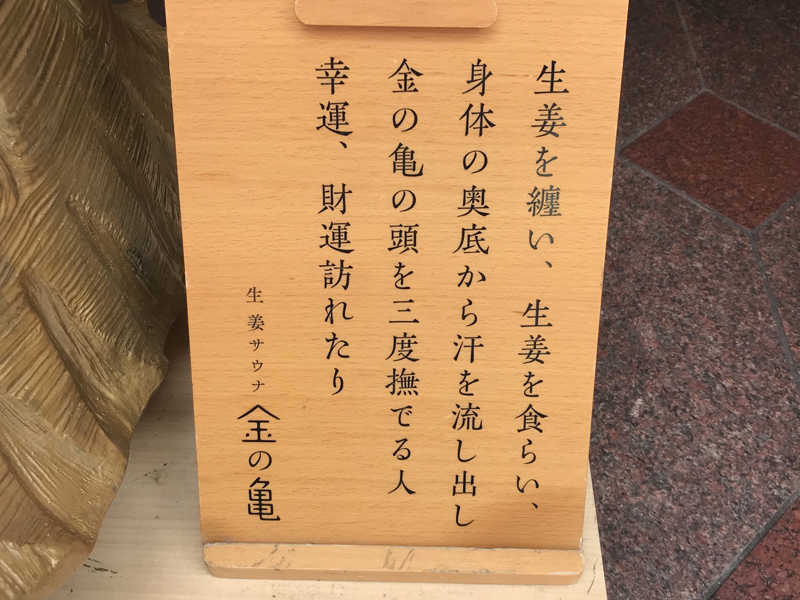 生姜を纏い、生姜を食らい、
身体の奥底から汗を流し出し
金の亀の頭を三度撫でる人
幸運、財運訪れたり
生姜サウナ
金の亀